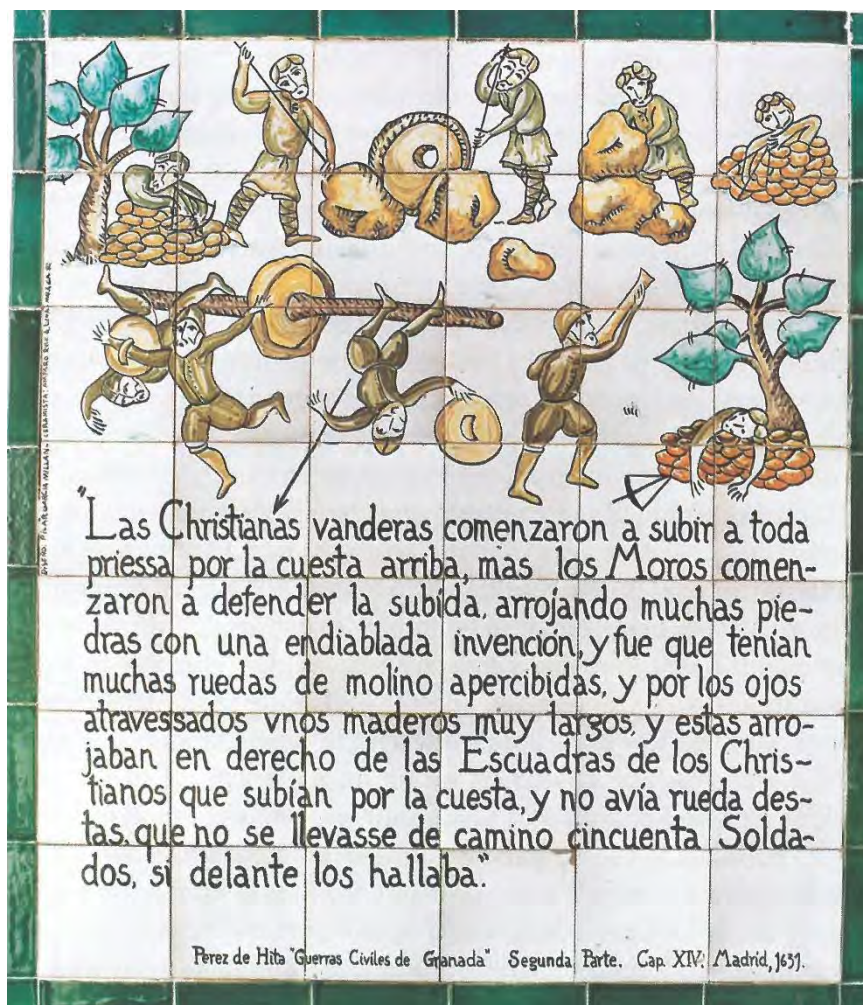 "Las Christianas vanderas comenzaron a subir a toda
priessa por la cuesta arriba, mas los Moros comen-
zaron a defender la subida, arrojando muchas pie-
dras con una endiablada invención, y fue que tenían
muchas ruedas de molino apercibidas, y por los ojos
atravessados vnos maderos muy largos, y estas arro-
jaban en derecho de las Escuadras de los Chris-
tianos que subían por la cuesta, y no avía rueda des-
tas, que no se llevasse de camino cincuenta Solda-
dos, si delante los hallaba".
Perez de Hita "Guerras Civiles de Granada" Segunda Parte. Cap. XIV. Madrid, 1631.
DISEÑO: PILAR GARCIA MILLAN - CERAMISTA: